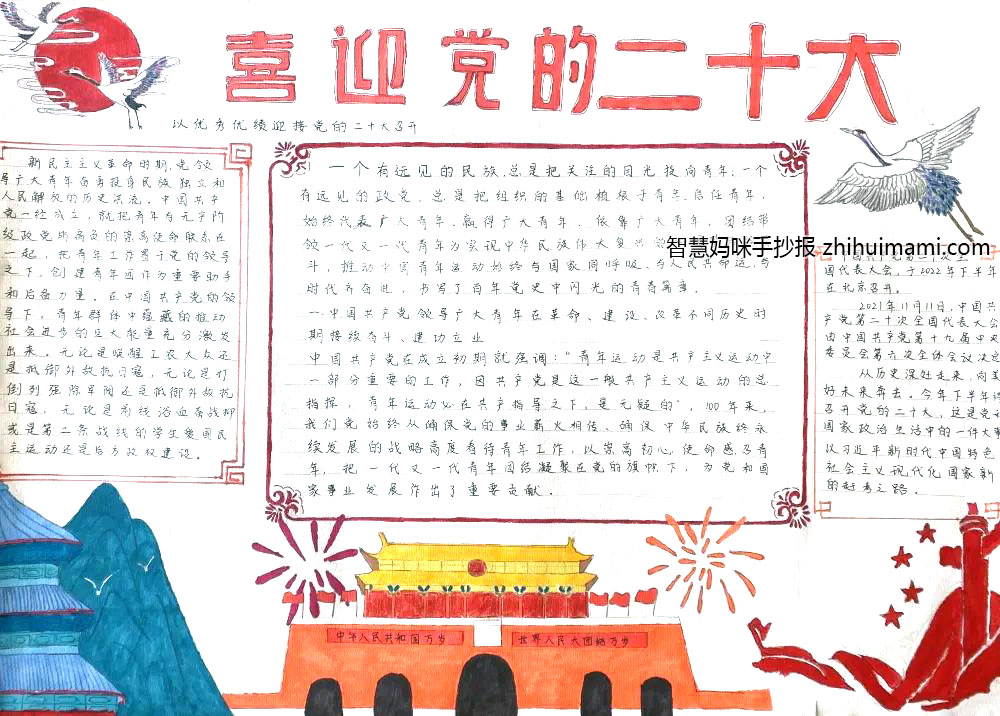 喜迎党的二十大
以优秀优绩迎接党的二十大召开
新民主主义革命时期,党领
导广大青年奋勇投身民族独立和
人民解放的历史洪流。中国共产
党一经成立,就把青年与无产阶
级政党所肩负的崇高使命联系在
一起,把青年工作置于党的领导
之下,创建青年团作为重要助手
和后备力量。在中国共产党的领
导下,青年群体中蕴藏的推动
社会进步的巨大能量充分激发
出来。无论是唤醒工农大众还
是抵御外敌抗日寇,无论是打
倒列强除军阀还是抵御外敌抗
日寇,无论是前线浴血奋战抑
或是第二条战线的学生爱国民
主运动还是后方政权建设。
一个有远见的民族,总是把关注的目光投向青年;一个
有远见的政党,总是把组织的基础植根于青年。信任青年,
始终代表广大青年、赢得广大青年、依靠广大青年,团结带
领一代又一代青年为实现中华民族伟大复兴
斗,推动中国青年运动始终与国家同呼吸、与人民共命运、与
时代齐奋进,书写了百年党史中闪光的青春篇章。
一.中国共产党领导广大青年在革命、建设、改革不同历史时
期接续奋斗、建功立业
中国共产党在成立初期就强调:"青年运动是共产主义运动中
一部分重要的工作,因共产党是这一般共产主义运动的总
指挥,青年运动必在共产指导之下,是无疑的"。100年来,
我们党始终从确保党的事业薪火相传、确保中华民族终永
续发展的战略高度看待青年工作,以崇高初心、使命感召青
年,把一代又一代青年团结凝聚在党的旗帜下,为党和国
家事业发展作出了重要贡献。
智慧妈咪手抄报 zhihuimami.com
国代表大会,于2022年下半年
在北京召开。
2021年11月11日,中国共
产党第二十次全国代表大会
由中国共产党第十九届中央
委员会第六次全体会议决定
从历史深处走来,向美
好未来奔去。今年下半年将
召开党的二十大,这是党和
国家政治生活中的一件大事
以习近平新时代中国特色
社会主义现代化国家新
的赶考之路。
中华人民共和国万岁
世界人民大团结万岁